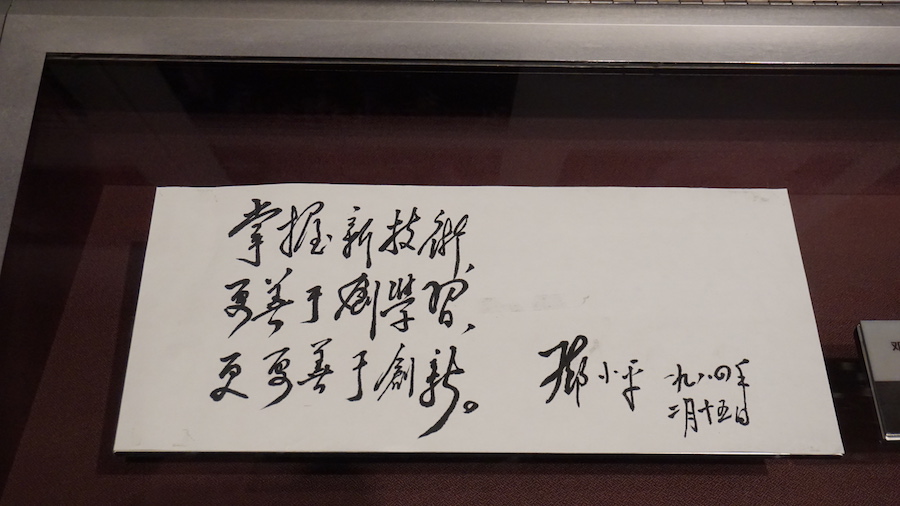 掌握新技術、
要善于學習、
更要善于創新。
鄧小平
一九八四年
二月十五日
邓